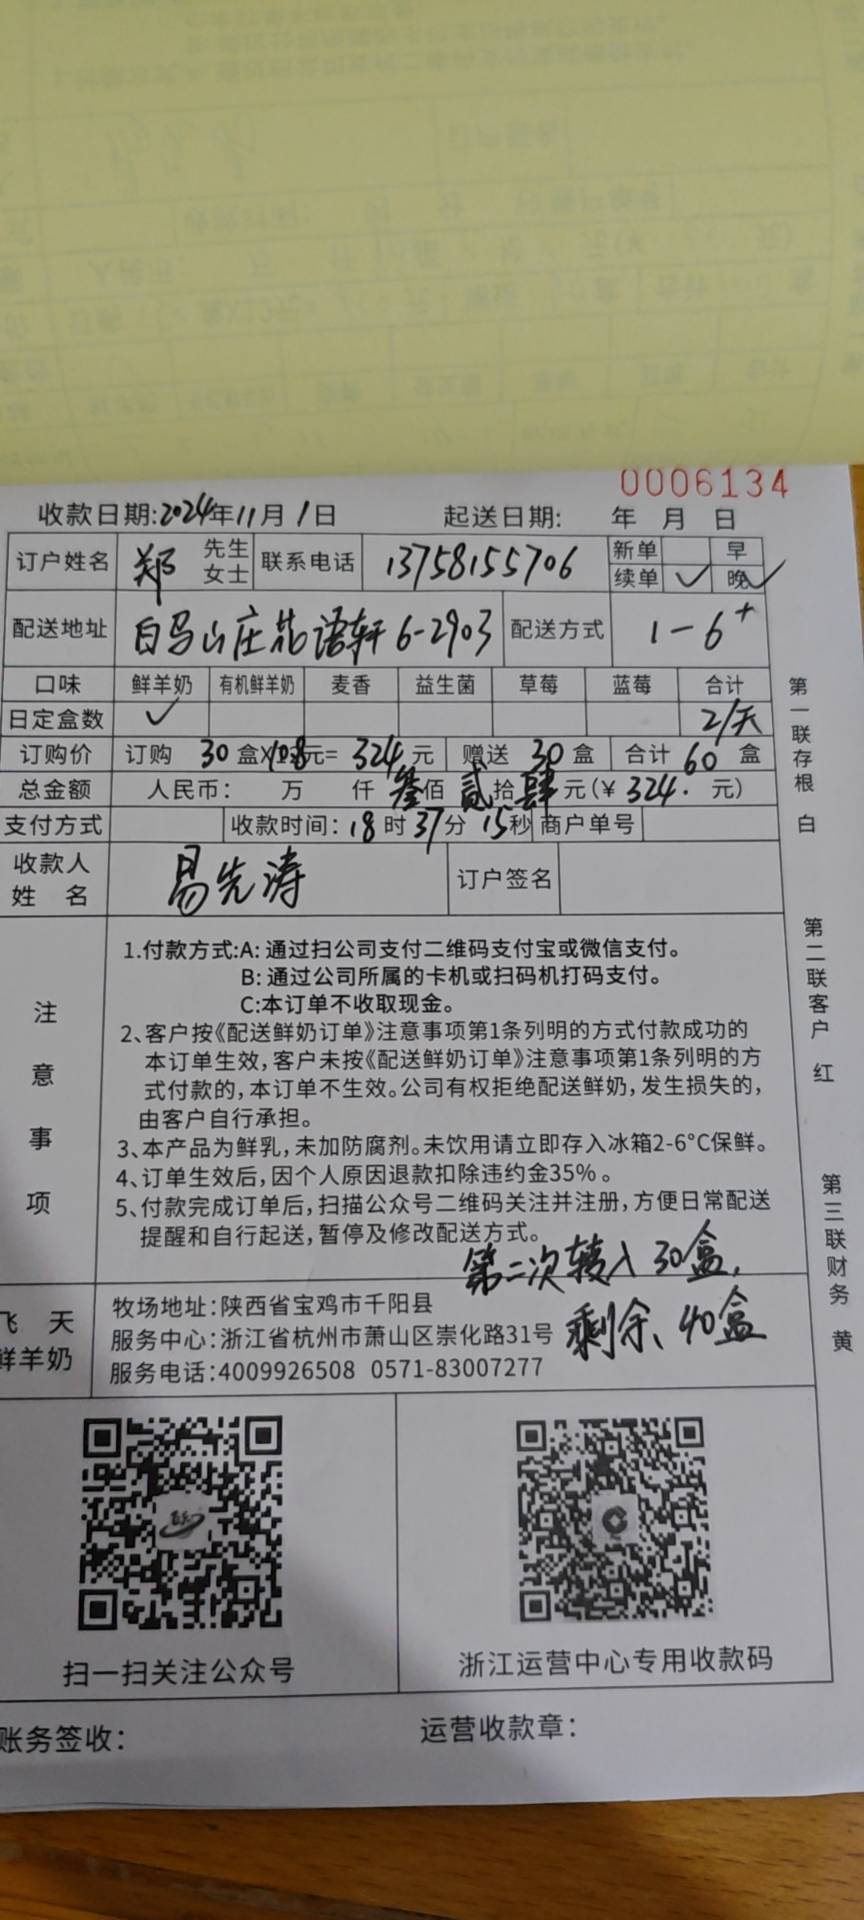 0006134
收款日期:2024年11月1日 起送日期: 年 月 日
订户姓名 郑 先生 女士 联系电话 13758155706 新单 早
续单 ✓ 晚 ✓
配送地址 白马山庄花语轩6-2903 配送方式 1-6+
口味 鲜羊奶 有机鲜羊奶 麦香 益生菌 草莓 蓝莓 合计
日定盒数 ✓ 2/天
订购价 订购 30 盒X10.8元= 324 元 赠送 30 盒 合计 60 盒
总金额 人民币: 万 仟 叁佰 贰拾 肆元(¥ 324. 元)
支付方式 收款时间: 18时37分15秒 商户单号
收款人姓名 易先涛 订户签名
注意事项
1.付款方式:A: 通过扫公司支付二维码支付宝或微信支付。
B: 通过公司所属的卡机或扫码机打码支付。
C:本订单不收取现金。
2、客户按《配送鲜奶订单》注意事项第1条列明的方式付款成功的
本订单生效,客户未按《配送鲜奶订单》注意事项第1条列明的方
式付款的,本订单不生效。公司有权拒绝配送鲜奶,发生损失的,
由客户自行承担。
3、本产品为鲜乳,未加防腐剂。未饮用请立即存入冰箱2-6°C保鲜。
4、订单生效后,因个人原因退款扣除违约金35%。
5、付款完成订单后,扫描公众号二维码关注并注册,方便日常配送
提醒和自行起送,暂停及修改配送方式。
第二次转入30盒,
剩余、40盒
飞天
鲜羊奶
牧场地址:陕西省宝鸡市千阳县
服务中心:浙江省杭州市萧山区崇化路31号
服务电话:4009926508 0571-83007277
扫一扫关注公众号
浙江运营中心专用收款码
账务签收:
运营收款章:
第一联存根 白
第二联客户 红
第三联财务 黄